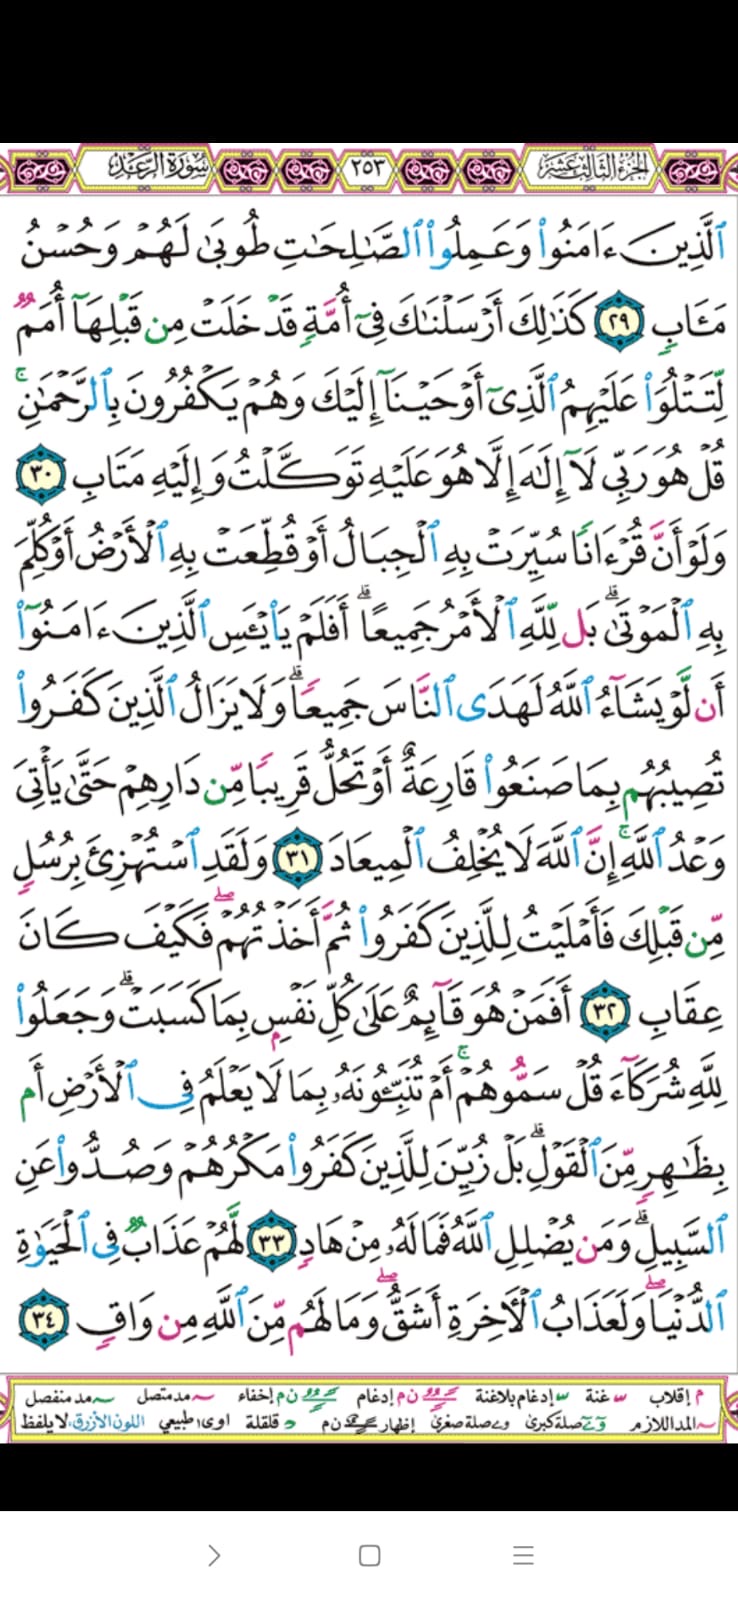 الجزء الثالث عشر ٢٥٣ سورة الرعد
ٱلَّذِينَ ءَامَنُوا۟ وَعَمِلُوا۟ ٱلصَّٰلِحَٰتِ طُوبَىٰ لَهُمْ وَحُسْنُ
مَـَٔابٍ ٢٩ كَذَٰلِكَ أَرْسَلْنَٰكَ فِىٓ أُمَّةٍ قَدْ خَلَتْ مِن قَبْلِهَآ أُمَمٌ
لِّتَتْلُوَا۟ عَلَيْهِمُ ٱلَّذِىٓ أَوْحَيْنَآ إِلَيْكَ وَهُمْ يَكْفُرُونَ بِٱلرَّحْمَٰنِ ۚ
قُلْ هُوَ رَبِّى لَآ إِلَٰهَ إِلَّا هُوَ عَلَيْهِ تَوَكَّلْتُ وَإِلَيْهِ مَتَابِ ٣٠
وَلَوْ أَنَّ قُرْءَانًا سُيِّرَتْ بِهِ ٱلْجِبَالُ أَوْ قُطِّعَتْ بِهِ ٱلْأَرْضُ أَوْ كُلِّمَ
بِهِ ٱلْمَوْتَىٰ ۗ بَل لِّلَّهِ ٱلْأَمْرُ جَمِيعًا ۗ أَفَلَمْ يَا۟يْـَٔسِ ٱلَّذِينَ ءَامَنُوٓا۟
أَن لَّوْ يَشَآءُ ٱللَّهُ لَهَدَى ٱلنَّاسَ جَمِيعًا ۗ وَلَا يَزَالُ ٱلَّذِينَ كَفَرُوا۟
تُصِيبُهُم بِمَا صَنَعُوا۟ قَارِعَةٌ أَوْ تَحُلُّ قَرِيبًا مِّن دَارِهِمْ حَتَّىٰ يَأْتِىَ
وَعْدُ ٱللَّهِ ۚ إِنَّ ٱللَّهَ لَا يُخْلِفُ ٱلْمِيعَادَ ٣١ وَلَقَدِ ٱسْتُهْزِئَ بِرُسُلٍ
مِّن قَبْلِكَ فَأَمْلَيْتُ لِلَّذِينَ كَفَرُوا۟ ثُمَّ أَخَذْتُهُمْ ۖ فَكَيْفَ كَانَ
عِقَابِ ٣٢ أَفَمَنْ هُوَ قَآئِمٌ عَلَىٰ كُلِّ نَفْسٍۭ بِمَا كَسَبَتْ ۗ وَجَعَلُوا۟
لِلَّهِ شُرَكَآءَ قُلْ سَمُّوهُمْ ۚ أَمْ تُنَبِّـُٔونَهُۥ بِمَا لَا يَعْلَمُ فِى ٱلْأَرْضِ أَم
بِظَٰهِرٍ مِّنَ ٱلْقَوْلِ ۗ بَلْ زُيِّنَ لِلَّذِينَ كَفَرُوا۟ مَكْرُهُمْ وَصُدُّوا۟ عَنِ
ٱلسَّبِيلِ ۗ وَمَن يُضْلِلِ ٱللَّهُ فَمَا لَهُۥ مِنْ هَادٍ ٣٣ لَّهُمْ عَذَابٌ فِى ٱلْحَيَوٰةِ
ٱلدُّنْيَا ۖ وَلَعَذَابُ ٱلْءَاخِرَةِ أَشَقُّ ۖ وَمَا لَهُم مِّنَ ٱللَّهِ مِن وَاقٍ ٣٤
م إقلاب غنة إدغام بلاغنة ن م إدغام ن م إخفاء مد متصل مد منفصل
المد اللازم صلة كبرى صلة صغرى إظهار ن م قلقلة اوى طبيعي اللون الأزرق لا يلفظ